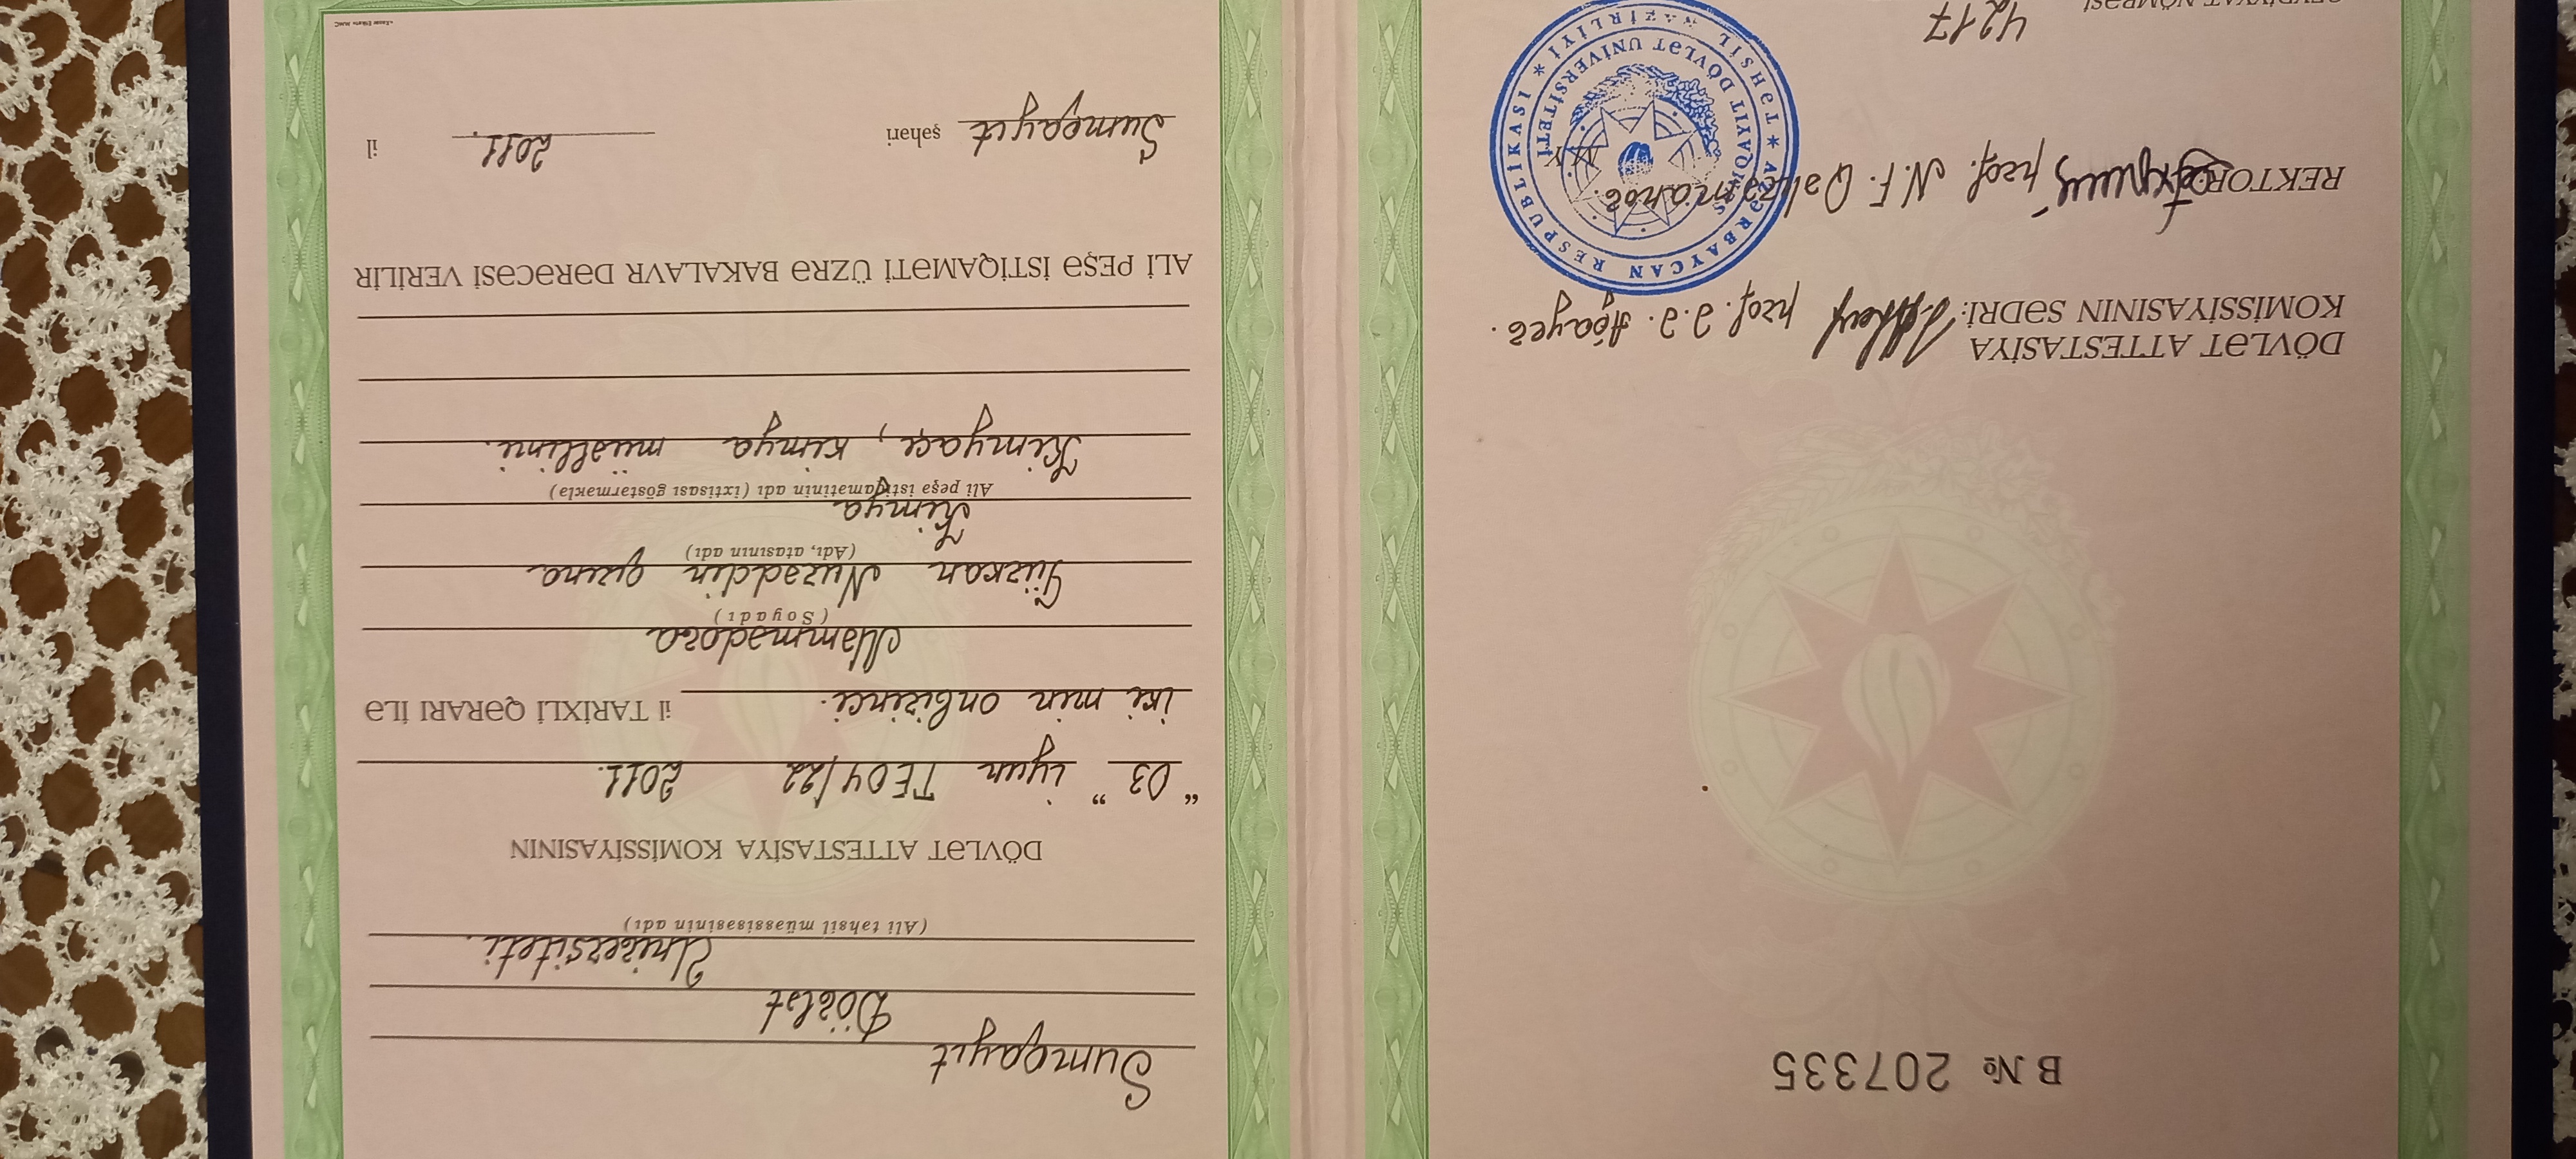 B № 207335
DÖVLƏT ATTESTASİYA
KOMİSSİYASININ SƏDRİ: prof. Ə.Ə. Ağayev.
REKTOR: prof. N.F. Qəhrəmanov.
M.Y.
AZƏRBAYCAN RESPUBLİKASI * TƏHSİL NAZİRLİYİ *
SUMQAYIT DÖVLƏT UNİVERSİTETİ
4217
QEYDİYYAT NÖMRƏSİ
Sumqayıt
Dövlət
Universiteti.
(Ali təhsil müəssisəsinin adı)
DÖVLƏT ATTESTASİYA KOMİSSİYASININ
"03" iyun TE04/22 2011.
iki min onbirinci. il TARİXLİ QƏRARI İLƏ
Məmmədova
(Soyadı)
Türkan Nurəddin qızına
(Adı, atasının adı)
Kimya
Ali peşə istiqamətinin adı (ixtisası göstərməklə)
Kimyaçı, kimya müəllimi.
ALİ PEŞƏ İSTİQAMƏTİ ÜZRƏ BAKALAVR DƏRƏCƏSİ VERİLİR
Sumqayıt şəhəri 2011. il